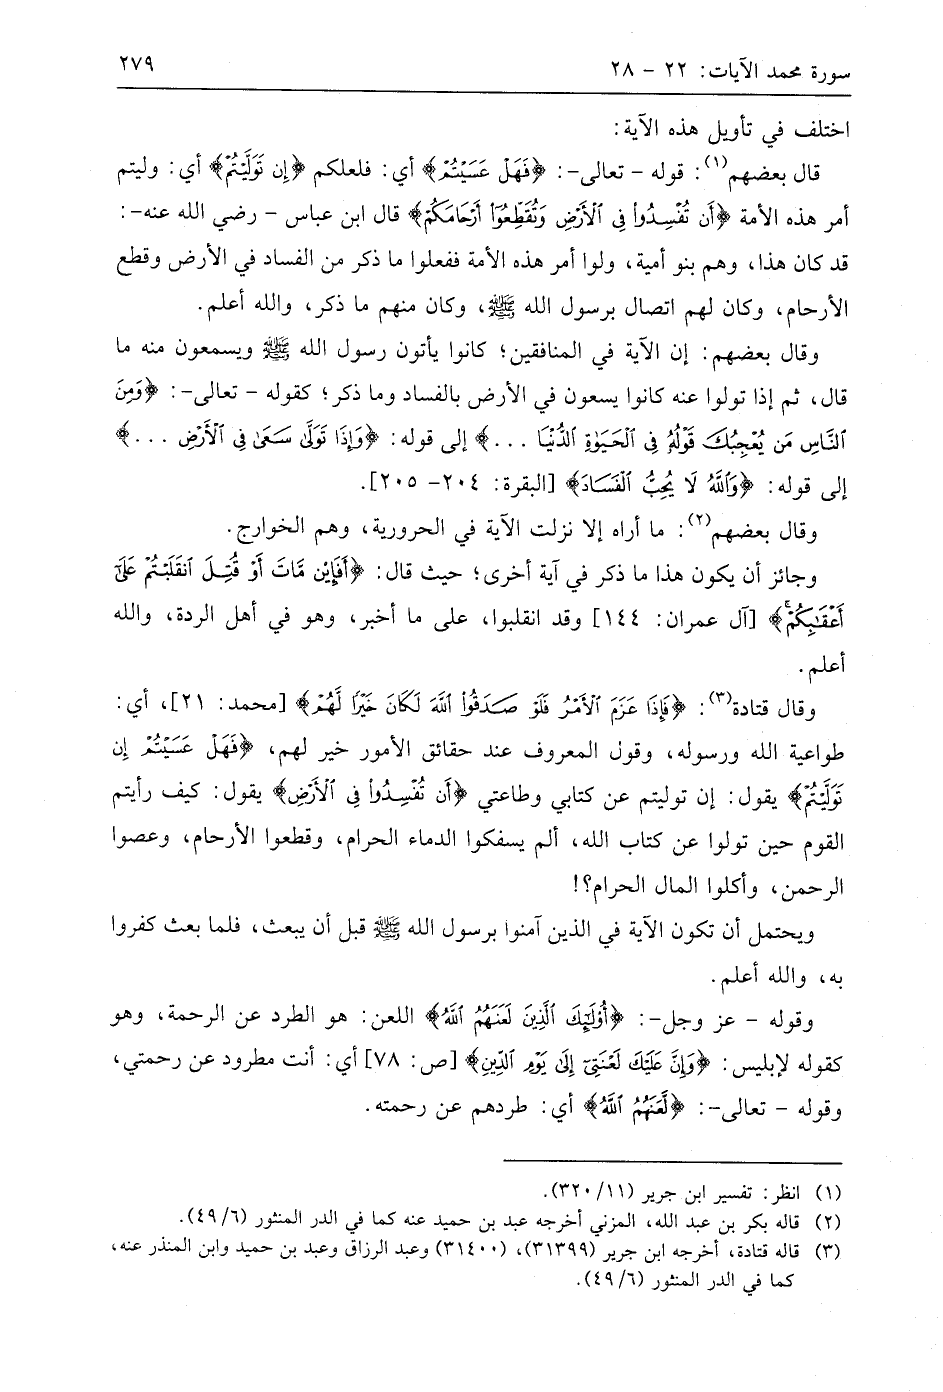 سورة محمد الآيات: ٢٢ - ٢٨ ٢٧٩
اختلف في تأويل هذه الآية:
قال بعضهم(١): قوله - تعالى-: ﴿فَهَلْ عَسَيْتُمْ﴾ أي: فلعلكم ﴿إِن تَوَلَّيْتُمْ﴾ أي: وليتم
أمر هذه الأمة ﴿أَن تُفْسِدُوا۟ فِى ٱلْأَرْضِ وَتُقَطِّعُوٓا۟ أَرْحَامَكُمْ﴾ قال ابن عباس - رضي الله عنه-:
قد كان هذا، وهم بنو أمية، ولوا أمر هذه الأمة ففعلوا ما ذكر من الفساد في الأرض وقطع
الأرحام، وكان لهم اتصال برسول الله ﷺ، وكان منهم ما ذكر، والله أعلم.
وقال بعضهم: إن الآية في المنافقين؛ كانوا يأتون رسول الله ﷺ ويسمعون منه ما
قال، ثم إذا تولوا عنه كانوا يسعون في الأرض بالفساد وما ذكر؛ كقوله - تعالى-: ﴿وَمِنَ
ٱلنَّاسِ مَن يُعْجِبُكَ قَوْلُهُۥ فِى ٱلْحَيَوٰةِ ٱلدُّنْيَا ...﴾ إلى قوله: ﴿وَإِذَا تَوَلَّىٰ سَعَىٰ فِى ٱلْأَرْضِ ...﴾
إلى قوله: ﴿وَٱللَّهُ لَا يُحِبُّ ٱلْفَسَادَ﴾ [البقرة: ٢٠٤- ٢٠٥].
وقال بعضهم(٢): ما أراه إلا نزلت الآية في الحرورية، وهم الخوارج.
وجائز أن يكون هذا ما ذكر في آية أخرى؛ حيث قال: ﴿أَفَإِي۟ن مَّاتَ أَوْ قُتِلَ ٱنقَلَبْتُمْ عَلَىٰٓ
أَعْقَـٰبِكُمْ ۚ﴾ [آل عمران: ١٤٤] وقد انقلبوا، على ما أخبر، وهو في أهل الردة، والله
أعلم.
وقال قتادة(٣): ﴿فَإِذَا عَزَمَ ٱلْأَمْرُ فَلَوْ صَدَقُوا۟ ٱللَّهَ لَكَانَ خَيْرًا لَّهُمْ﴾ [محمد: ٢١]، أي:
طواعية الله ورسوله، وقول المعروف عند حقائق الأمور خير لهم، ﴿فَهَلْ عَسَيْتُمْ إِن
تَوَلَّيْتُمْ﴾ يقول: إن توليتم عن كتابي وطاعتي ﴿أَن تُفْسِدُوا۟ فِى ٱلْأَرْضِ﴾ يقول: كيف رأيتم
القوم حين تولوا عن كتاب الله، ألم يسفكوا الدماء الحرام، وقطعوا الأرحام، وعصوا
الرحمن، وأكلوا المال الحرام؟!
ويحتمل أن تكون الآية في الذين آمنوا برسول الله ﷺ قبل أن يبعث، فلما بعث كفروا
به، والله أعلم.
وقوله - عز وجل-: ﴿أُو۟لَـٰٓئِكَ ٱلَّذِينَ لَعَنَهُمُ ٱللَّهُ﴾ اللعن: هو الطرد عن الرحمة، وهو
كقوله لإبليس: ﴿وَإِنَّ عَلَيْكَ لَعْنَتِىٓ إِلَىٰ يَوْمِ ٱلدِّينِ﴾ [ص: ٧٨] أي: أنت مطرود عن رحمتي،
وقوله - تعالى-: ﴿لَّعَنَهُمُ ٱللَّهُ﴾ أي: طردهم عن رحمته.
(١) انظر: تفسير ابن جرير (٣٢٠/١١).
(٢) قاله بكر بن عبد الله، المزني أخرجه عبد بن حميد عنه كما في الدر المنثور (٤٩/٦).
(٣) قاله قتادة، أخرجه ابن جرير (٣١٣٩٩)، (٣١٤٠٠) وعبد الرزاق وعبد بن حميد وابن المنذر عنه،
كما في الدر المنثور (٤٩/٦).